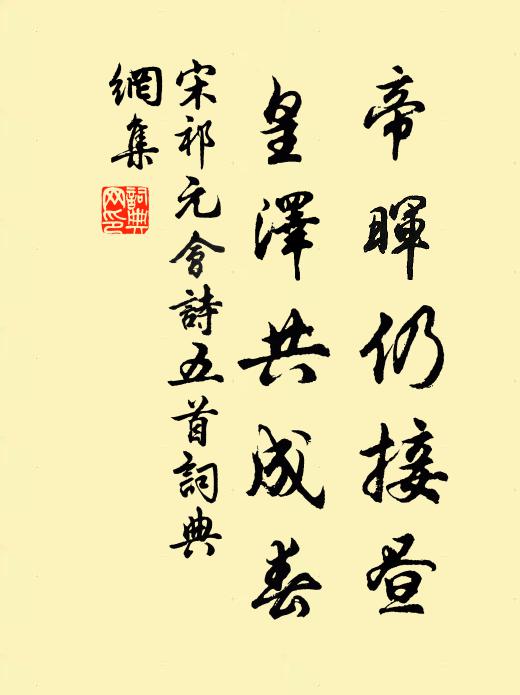 帝暉仍接晝
皇澤共成春
宋祁元會詩五首詞典
網集
詞典網印